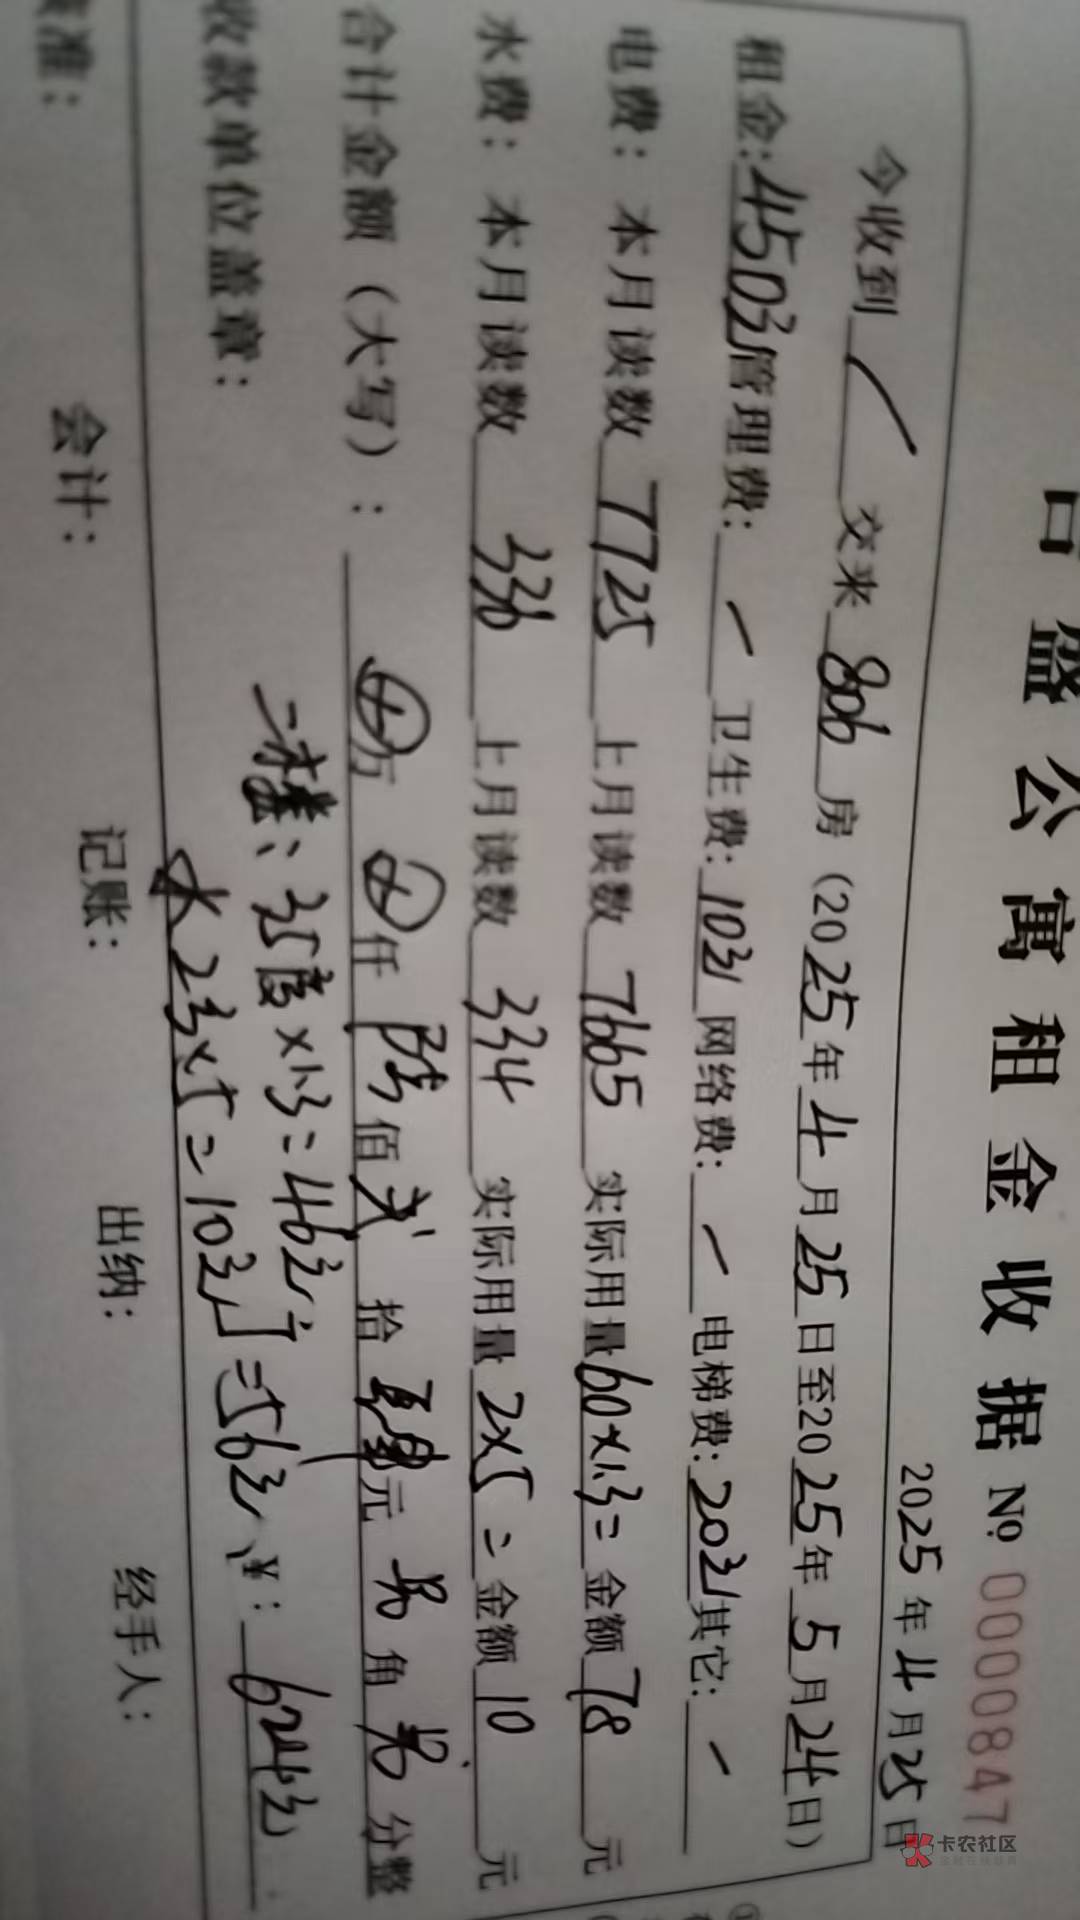 吉盛公寓租金收据 № 0000847
2025年4月25日
今收到 / 交来 806 房（2025年4月25日至2025年5月24日）
租金：450元 管理费： / 卫生费：10元 网络费： / 电梯费：20元 其它： /
电费：本月读数 7725 上月读数 7665 实际用量 60×1.3= 金额 78 元
水费：本月读数 336 上月读数 334 实际用量 2×5= 金额 10 元
合计金额（大写）： 万 仟 陆佰 贰拾 肆元 角 分整
收款单位盖章： 一楼：35度×1.3=46元 ¥：624元
水2方×5=10元 =56元
核准： 会计： 记账： 出纳： 经手人：
卡农社区